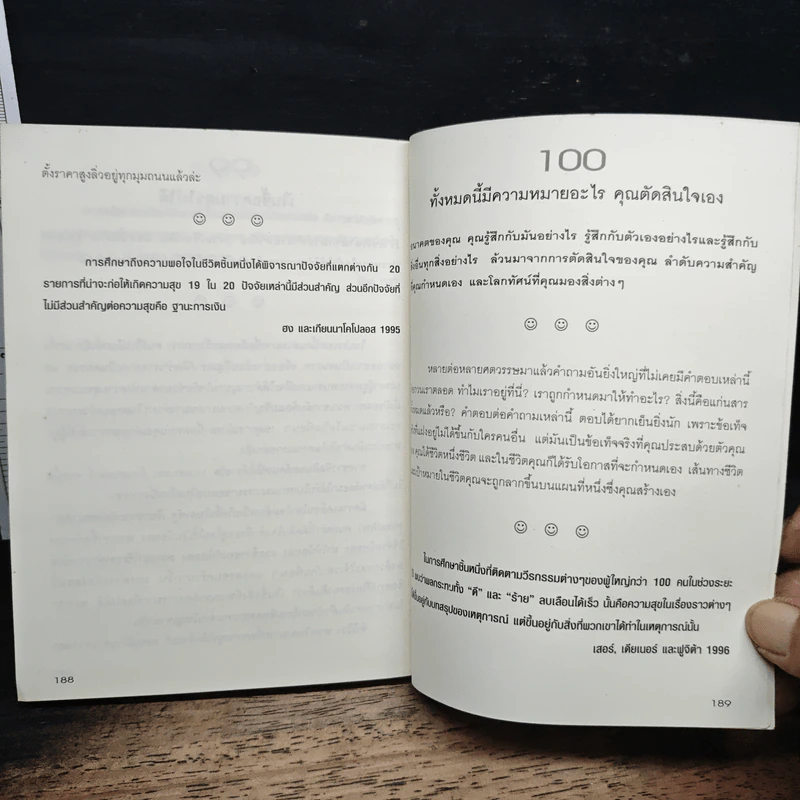 ตั้งราคาสูงลิ่วอยู่ทุกมุมถนนแล้วล่ะ
การศึกษาถึงความพอใจในชีวิตชิ้นหนึ่งได้พิจารณาปัจจัยที่แตกต่างกัน 20
รายการที่น่าจะก่อให้เกิดความสุข 19 ใน 20 ปัจจัยเหล่านี้มีส่วนสำคัญ ส่วนอีกปัจจัยที่
ไม่มีส่วนสำคัญต่อความสุขคือ ฐานะการเงิน
ฮง และเกียนนาโคโปลอส 1995
188
100
ทั้งหมดนี้มีความหมายอะไร คุณตัดสินใจเอง
คุณรู้สึกกับมันอย่างไร รู้สึกกับตัวเองอย่างไรและรู้สึกกับ
อื่นทุกสิ่งอย่างไร ล้วนมาจากการตัดสินใจของคุณ ลำดับความสำคัญ
คุณกำหนดเอง และโลกทัศน์ที่คุณมองสิ่งต่างๆ
หลายต่อหลายศตวรรษมาแล้วคำถามอันยิ่งใหญ่ที่ไม่เคยมีคำตอบเหล่านี้
กวนเราตลอด ทำไมเราอยู่ที่นี่? เราถูกกำหนดมาให้ทำอะไร? สิ่งนี้คือแก่นสาร
แล้วหรือ? คำตอบต่อคำถามเหล่านี้ ตอบได้ยากเย็นยิ่งนัก เพราะข้อเท็จ
อยู่ไม่ได้ขึ้นกับใครคนอื่น แต่มันเป็นข้อเท็จจริงที่คุณประสบด้วยตัวคุณ
คุณได้ชีวิตหนึ่งชีวิต และในชีวิตคุณก็ได้รับโอกาสที่จะกำหนดเอง เส้นทางชีวิต
เป้าหมายในชีวิตคุณจะถูกลากขึ้นบนแผนที่หนึ่งซึ่งคุณสร้างเอง
ในการศึกษาชิ้นหนึ่งที่ติดตามวีรกรรมต่างๆของผู้ใหญ่กว่า 100 คนในช่วงระยะ
พบว่าผลกระทบทั้ง “ดี” และ “ร้าย” ลบเลือนได้เร็ว นั้นคือความสุขในเรื่องราวต่างๆ
ขึ้นอยู่กับบทสรุปของเหตุการณ์ แต่ขึ้นอยู่กับสิ่งที่พวกเขาได้ทำในเหตุการณ์นั้น
เสอร์, เดียเนอร์ และฟูจิต้า 1996
189